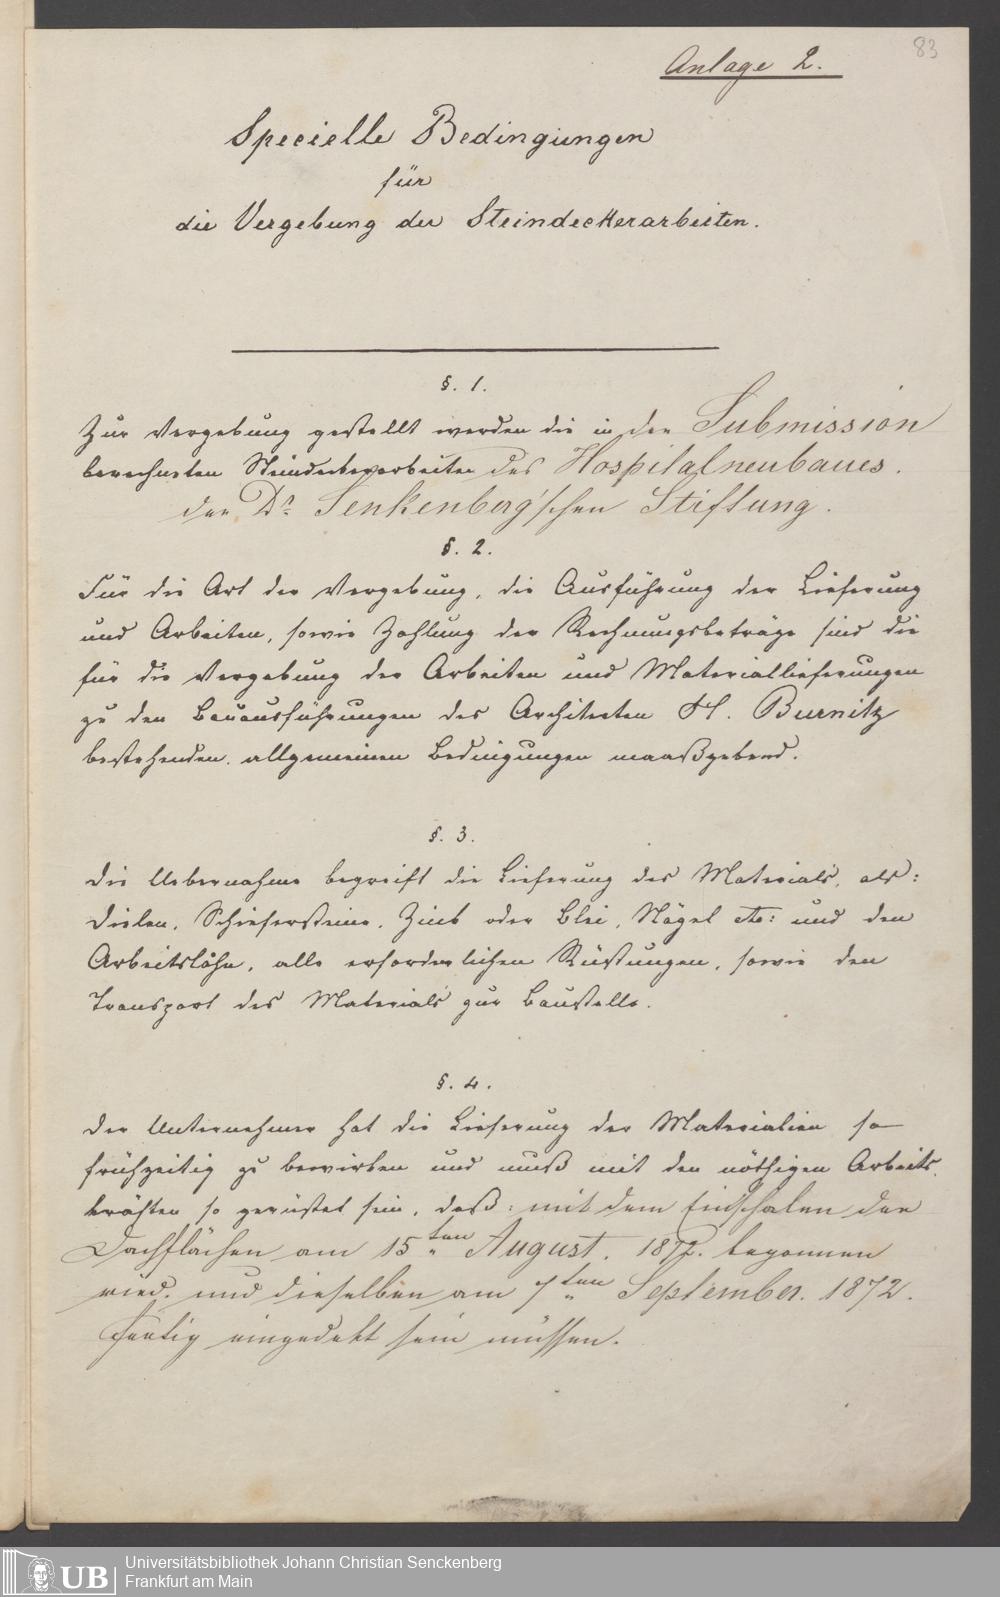 83
Anlage 2.
Specielle Bedingungen
für
die Vergebung der Steindeckerarbeiten.
§. 1.
Zur Vergebung gestellt werden die in der Submission
berechneten Steindeckerarbeiten des Hospitalneubaues.
der Dr. Senkenberg'schen Stiftung.
§. 2.
Für die Art der Vergebung, die Ausführung der Lieferung
und Arbeiten, sowie Zahlung der Rechnungsbeträge sind die
für die Vergebung der Arbeiten und Materiallieferungen
zu den Bauausführungen des Architecten H. Burnitz
bestehenden allgemeinen Bedingungen maaßgebend.
§. 3.
Die Uebernahme begreift die Lieferung des Materials, als:
Dielen, Schiefersteine, Zink oder Blei, Nägel etc: und den
Arbeitslohn, alle erforderlichen Rüstungen, sowie den
Transport des Materials zur Baustelle.
§. 4.
Der Unternehmer hat die Lieferung der Materialien so
frühzeitig zu bewirken und muß mit den nöthigen Arbeits
kräften so gerüstet sein, daß: mit dem Einschalen der
Dachflächen am 15ten August. 1872. begonnen
wird. und dieselben am 7ten September. 1872.
fertig eingedekt sein müssen.
UB
Universitätsbibliothek Johann Christian Senckenberg
Frankfurt am Main